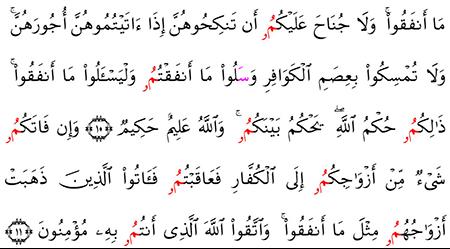 مَا أَنفَقُوا۟ۚ وَلَا جُنَاحَ عَلَيْكُمُۥ أَن تَنكِحُوهُنَّ إِذَا ءَاتَيْتُمُوهُنَّ أُجُورَهُنَّۚ
وَلَا تُمْسِكُوا۟ بِعِصَمِ ٱلْكَوَافِرِ وَسَلُوا۟ مَا أَنفَقْتُمُۥ وَلْيَسْـَٔلُوا۟ مَا أَنفَقُوا۟ۚ
ذَٰلِكُمُۥ حُكْمُ ٱللَّهِۖ يَحْكُمُ بَيْنَكُمُۥۚ وَٱللَّهُ عَلِيمٌ حَكِيمٌ ﴿١٠﴾ وَإِن فَاتَكُمُۥ
شَىْءٌ مِّنْ أَزْوَٰجِكُمُۥ إِلَى ٱلْكُفَّارِ فَعَاقَبْتُمُۥ فَـَٔاتُوا۟ ٱلَّذِينَ ذَهَبَتْ
أَزْوَٰجُهُمُۥ مِثْلَ مَا أَنفَقُوا۟ۚ وَٱتَّقُوا۟ ٱللَّهَ ٱلَّذِى أَنتُمُۥ بِهِۦ مُؤْمِنُونَ ﴿١١﴾